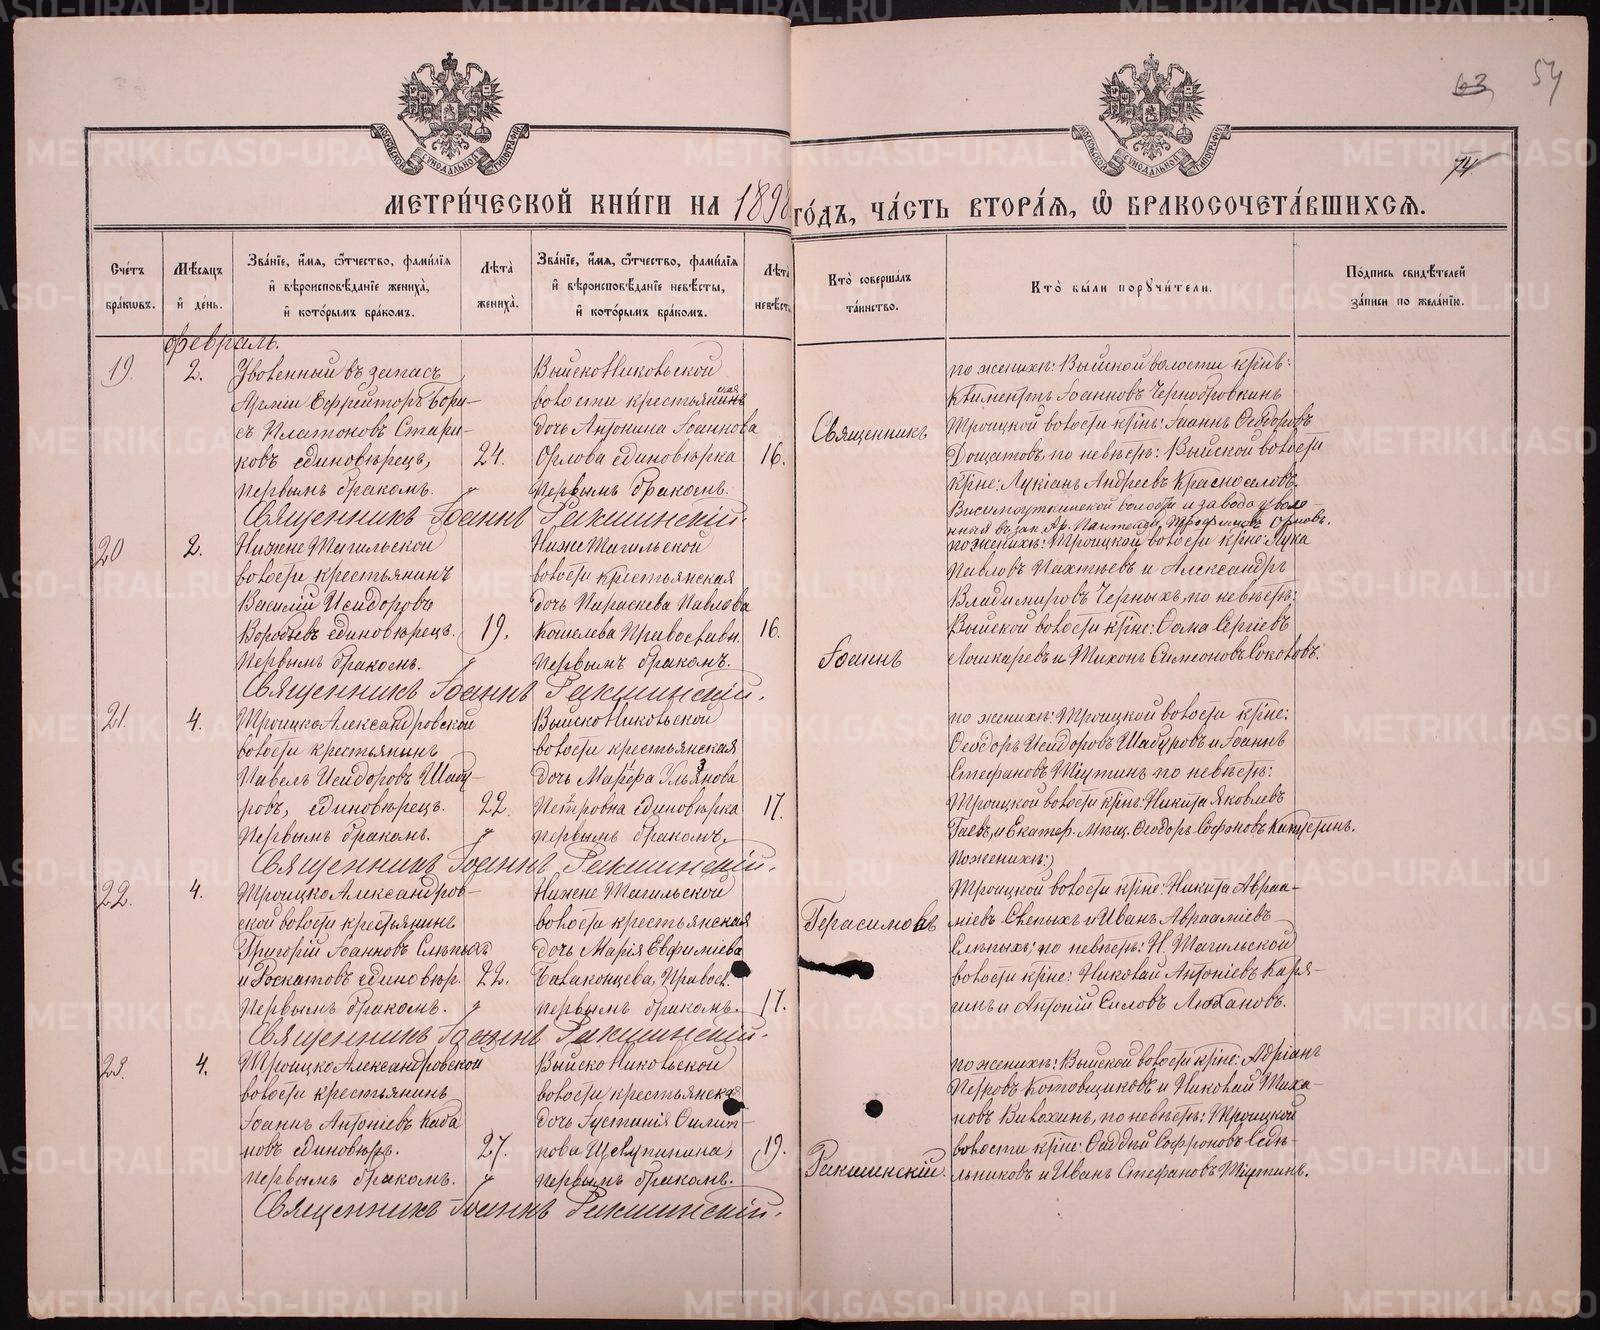 63
54
74
МОСКОВСКОЙ СѴНОДАЛЬНОЙ ТИПОГРАФІИ
МОСКОВСКОЙ СѴНОДАЛЬНОЙ ТИПОГРАФІИ
МЕТРИ́ЧЕСКОЙ КНИ́ГИ НА 1898 ГО́ДЪ, ЧА́СТЬ ВТОРА́Ѧ, Ѡ҆ БРАКОСОЧЕТА́ВШИХСѦ.
Сче́тъ бра́кѡвъ.
Мѣ́сѧцъ и҆ де́нь.
Зва́нїе, и҆́мѧ, ѻ҆́тчество, фами́лїѧ и҆ вѣроисповѣ́данїе жениха̀, и҆ кото́рымъ бра́комъ.
Лѣ́та жениха̀.
Зва́нїе, и҆́мѧ, ѻ҆́тчество, фами́лїѧ и҆ вѣроисповѣ́данїе невѣ́сты, и҆ кото́рымъ бра́комъ.
Лѣ́та невѣ́ст
Кто̀ соверша́лъ та́инство.
Кто̀ бы́ли порꙋчи́тели.
По́дпись свидѣ́телей за́писи по жела́нїю.
Февраль.
19.
2.
Уволенный въ запасъ
Арміи Ефрейторъ Бори-
съ Платоновъ Стари-
ковъ единовѣрецъ,
первымъ бракомъ.
24.
Выйско Никольской
волости крестьянская
дочь Антонина Іоаннова
Орлова единовѣрка
первымъ бракомъ.
16.
по женихѣ: Выйской волости кр‑нъ:
Климентъ Іоанновъ Чернобровкинъ
Троицкой волости кр‑нъ: Іоаннъ Ѳеодоровъ
Дощатовъ, по невѣстѣ: Выйской волости
кр‑не: Лукіанъ Андреевъ Красноселовъ
Висимоуткинской волости и завода уволе-
нный въ зап. Ар. Пантелей Трофимовъ Орловъ.
Священникъ Іоаннъ Ракшинскій.
20
2.
Нижне Тагильской
волости крестьянинъ
Василій Исидоровъ
Воробьевъ единовѣрецъ.
первымъ бракомъ.
19.
Ниже Тагильской
волости крестьянская
дочь Параскева Павлова
Кошелева Православн.
первымъ бракомъ.
16.
по женихѣ: Троицкой волости кр‑не: Лука
Павловъ Пахтѣевъ и Александръ
Владимировъ Черныхъ, по невѣстѣ:
Выйской волости кр‑не: Ѳома Сергіевъ
Лошкаревъ и Тихонъ Симеоновъ Соколовъ.
Священникъ Іоаннъ Ракшинскій.
21.
4.
Троицко Александровской
волости крестьянинъ
Павелъ Исидоровъ Шабу-
ровъ, единовѣрецъ.
первымъ бракомъ.
22.
Выйско Никольской
волости крестьянская
дочь Марѳа Ульянова
Петровна единовѣрка
первымъ бракомъ.
17.
по женихѣ: Троицкой волости кр‑не:
Ѳеодоръ Исидоровъ Шабуровъ и Іоаннъ
Стефановъ Шутинъ по невѣстѣ:
Троицкой волости кр‑нъ: Никита Яковлевъ
Гаевъ, и Екатер. Мѣщ. Ѳеодоръ Софоновъ
Священникъ Іоаннъ Ракшинскій.
22.
4.
Троицко Александров-
ской волости крестьянинъ
Григорій Іоанновъ Слѣпыхъ
и Роскатовъ единовѣр.
первымъ бракомъ.
22.
Нижне Тагильской
волости крестьянская
дочь Марія Евфиміева
Балаконцева, Правосл.
первымъ бракомъ.
17.
По женихѣ:
Троицкой волости кр‑не: Никита Авраа-
міевъ Слѣпыхъ и Иванъ Авраамiевъ
Слѣпыхъ; по невѣстѣ: Н. Тагильской
волости кр‑не: Николай Антоніевъ Каря-
инъ и Антоній Силовъ Люхановъ.
Священникъ Іоаннъ Ракшинскій.
23.
4.
Троицко Александровской
волости крестьянинъ
Іоаннъ Антоніевъ Каба
новъ единовѣр.
первымъ бракомъ.
27.
Выйско Николской
волости крестьянска
дочь Іустинія Филип-
пова Щелупинина,
первымъ бракомъ.
19.
по женихѣ: Выйской волости кр‑не: Адріанъ
Петровъ Котовщиковъ и Николай Миха-
повъ Вилохинъ, по невѣстѣ: Троицкой
волости кр‑не: Ѳаддей Софроновъ Седѣ-
льниковъ и Иванъ Стефановъ Шутинъ.
Священникъ Іоаннъ Ракшинскій.
Священникъ
Іоаннъ
Герасимовъ
Ракшинскій.
METRIKI.GASO-URAL.RU